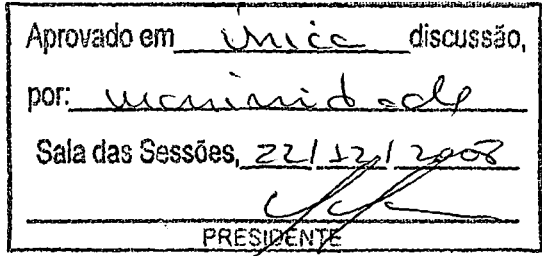 Aprovado em única discussão,
por: unanimidade
Sala das Sessões, 22/12/2008
PRESIDENTE